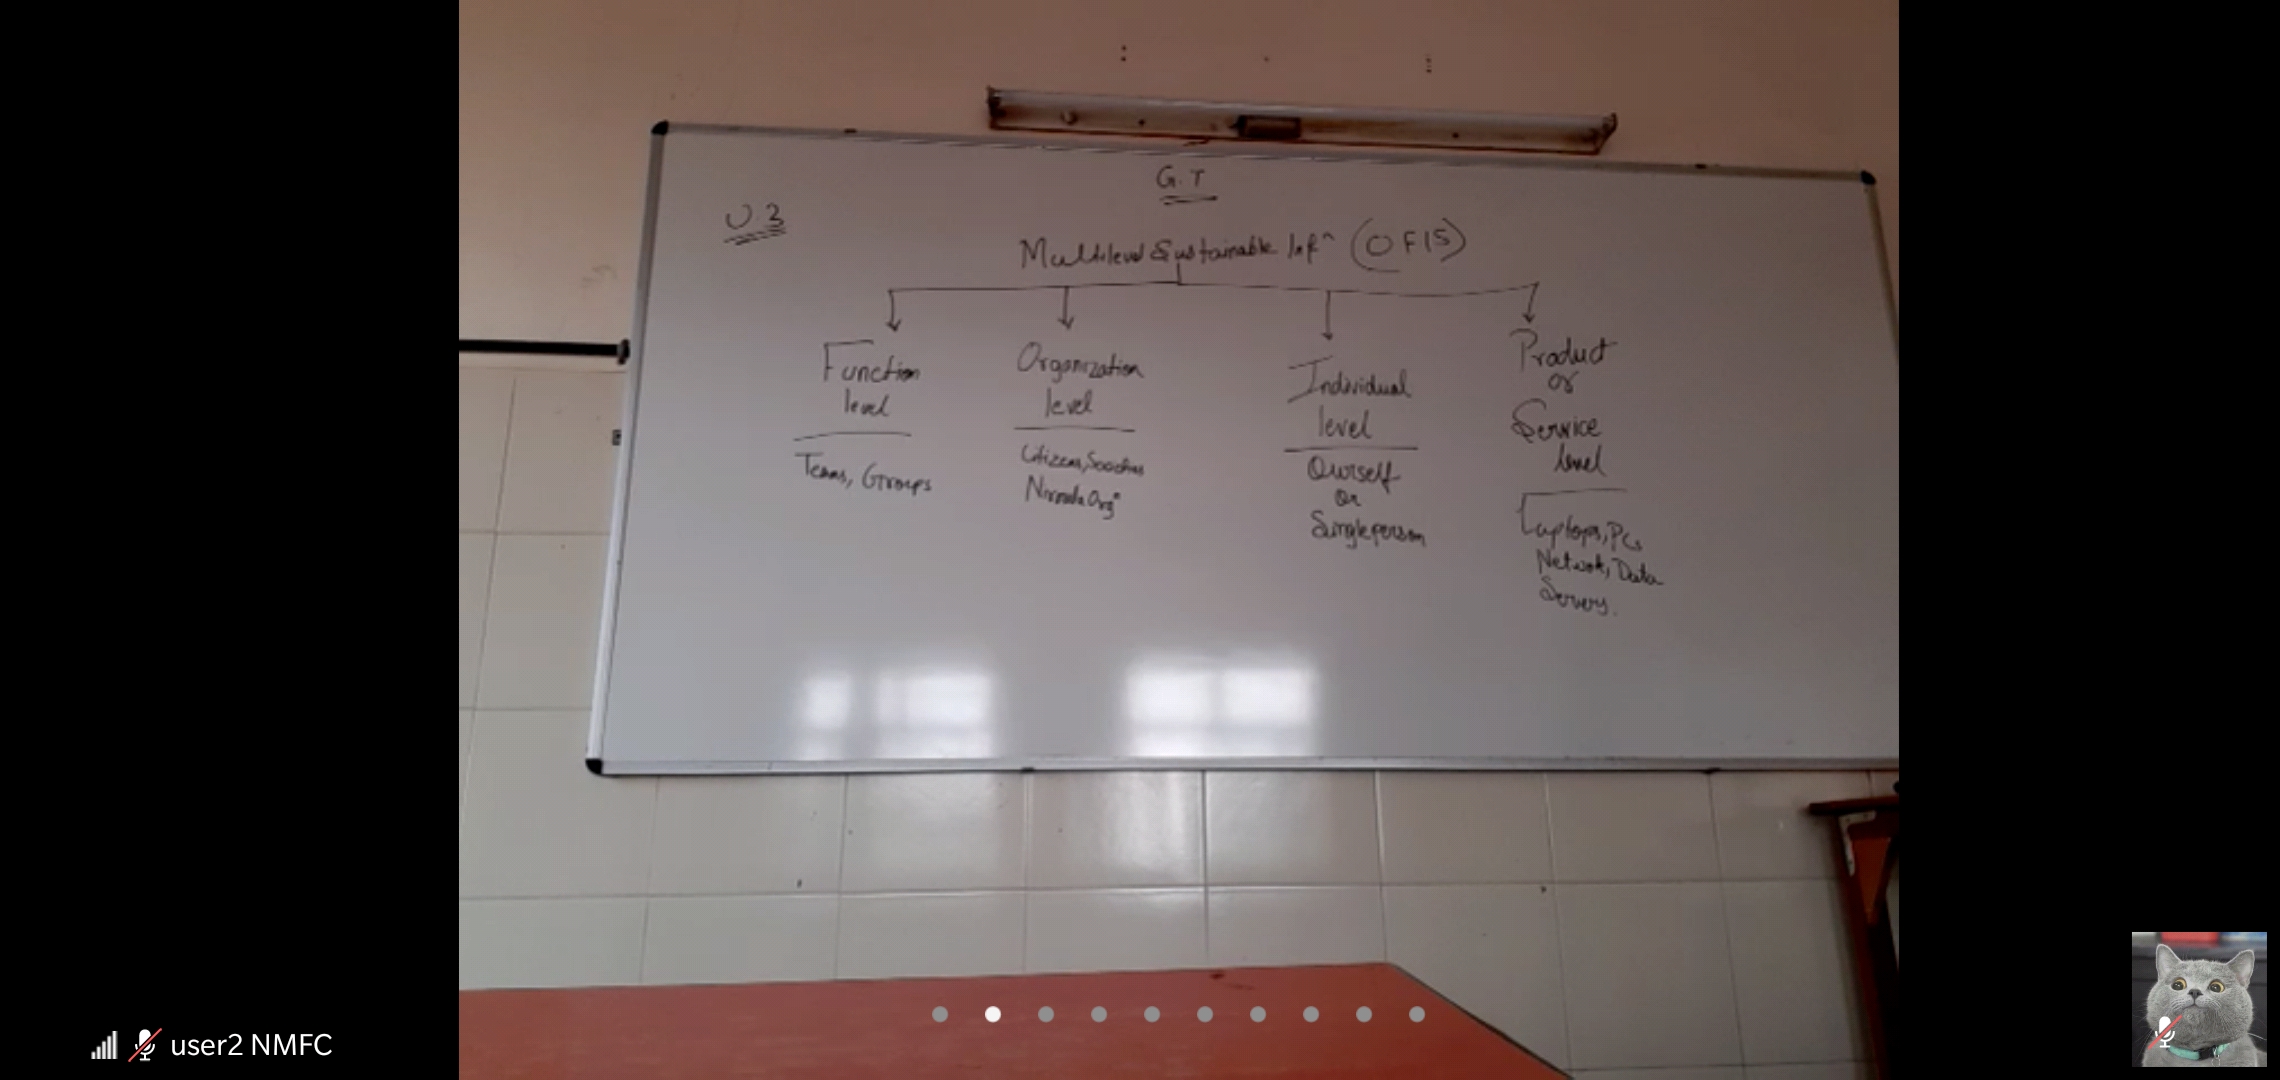 G.T
U.3
Multilevel Sustainable Infⁿ (OFIS)
Function
level
Teams, Groups
Organization
level
Citizens, Societies
Nirmala Orgⁿ
Individual
level
Ourself
Or
Single person
Product
or
Service
level
Laptops, PCs
Network, Data
Servers.
user2 NMFC